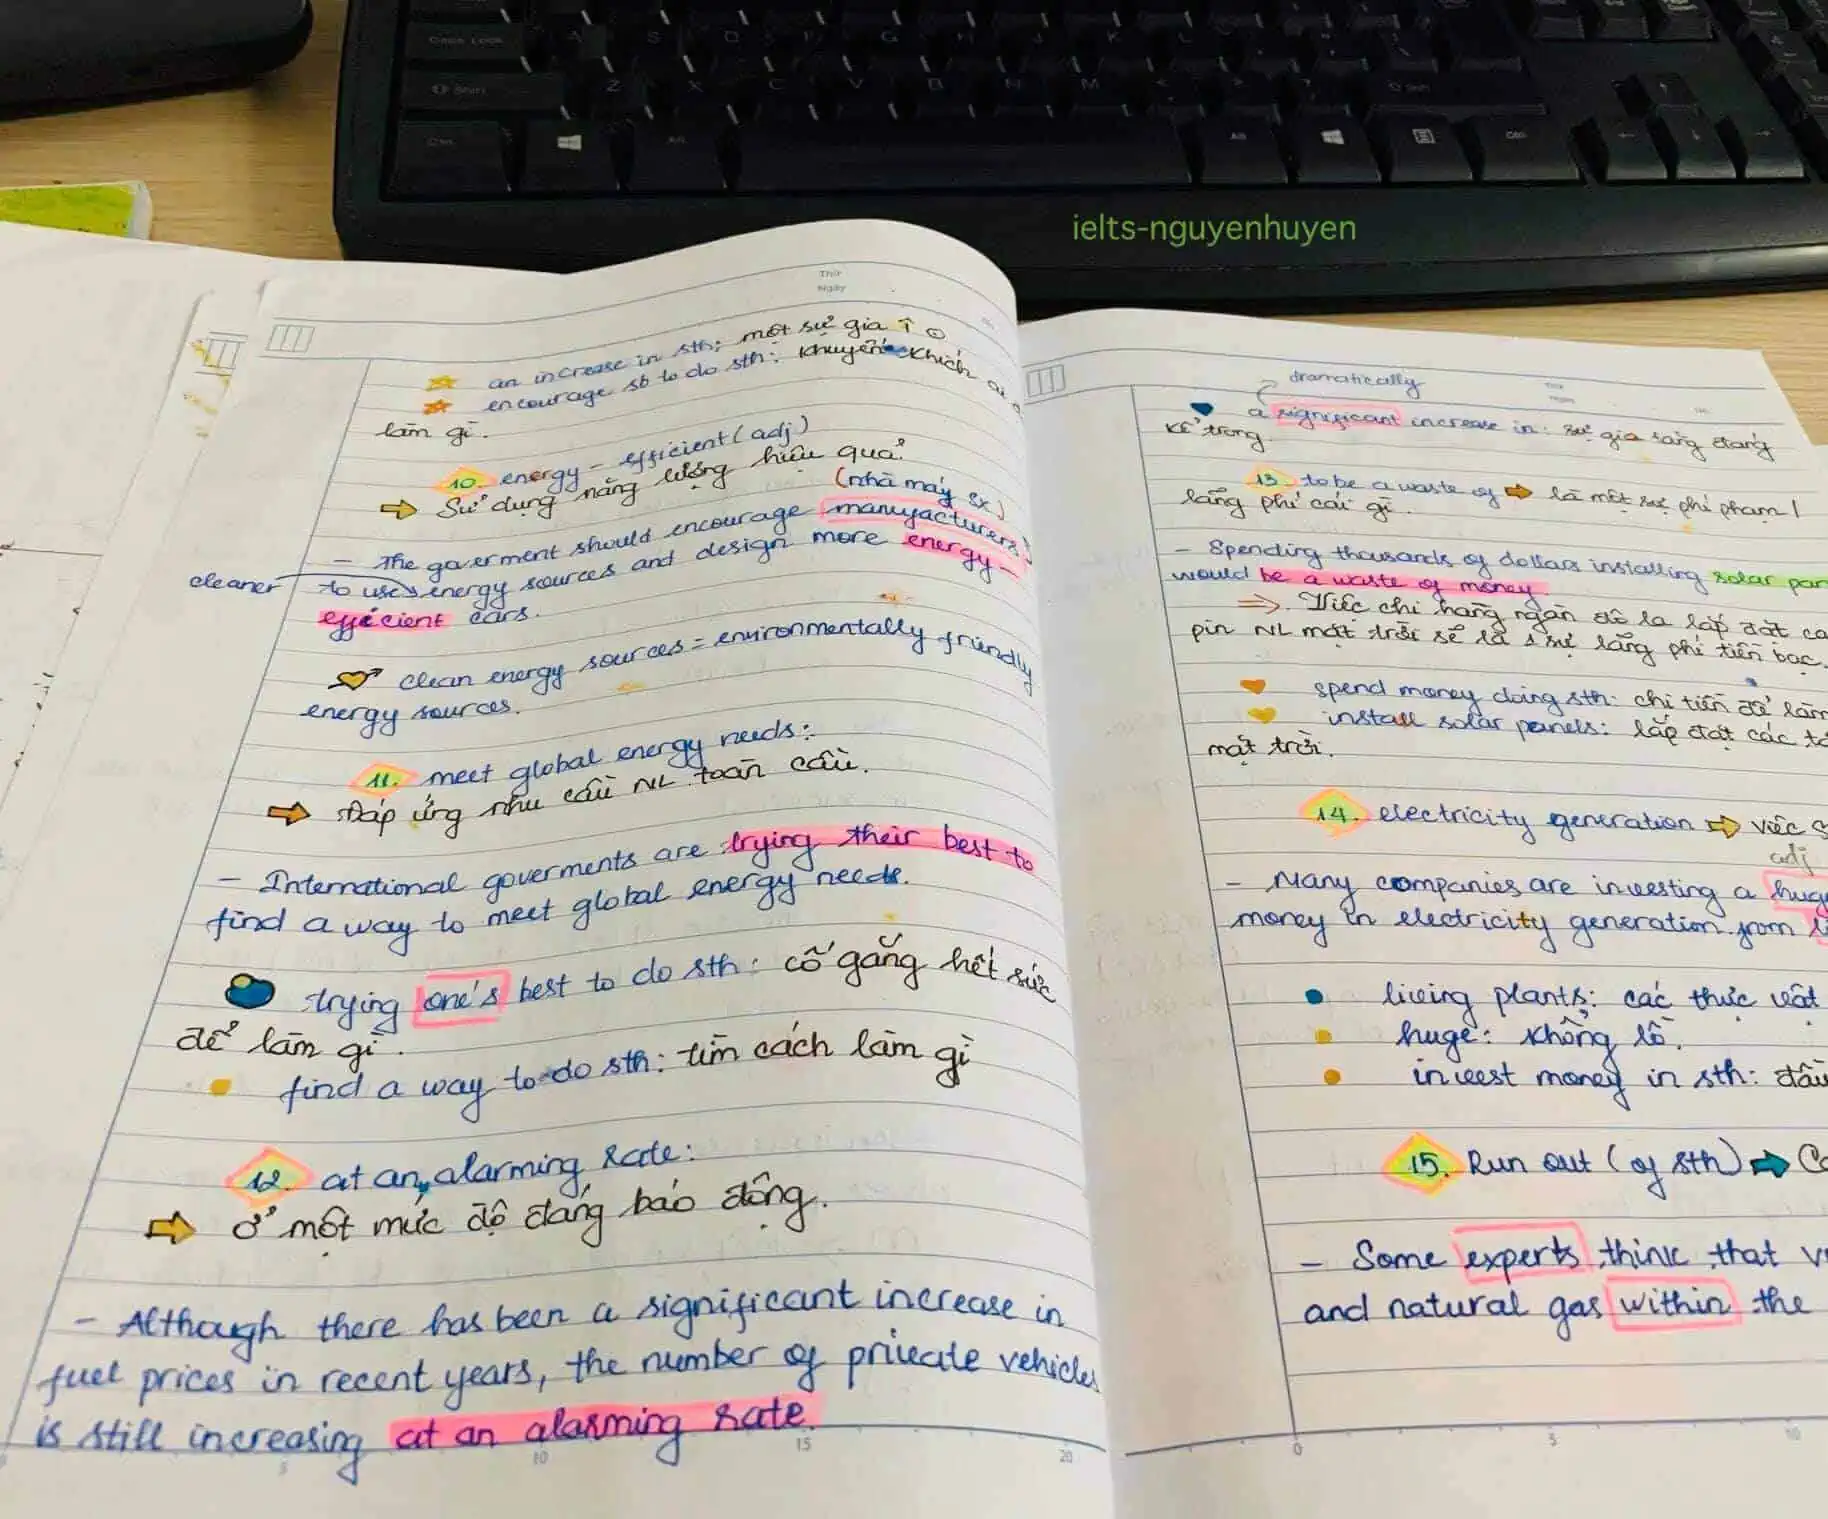 ielts-nguyenhuyen
Thứ
Ngày
an increase in sth: một sự gia ↑
encourage sb to do sth: khuyến khích ai
làm gì.
10. energy - efficient (adj)
Sử dụng năng lượng hiệu quả
(nhà máy sx)
- The goverment should encourage manufacturers
cleaner
to use energy sources and design more energy-
efficient cars.
clean energy sources = environmentally friendly
energy sources.
11. meet global energy needs:
Đáp ứng nhu cầu NL toàn cầu.
- International goverments are trying their best to
find a way to meet global energy needs.
trying one's best to do sth: cố gắng hết sức
để làm gì.
find a way to do sth: tìm cách làm gì
12. at an alarming rate:
ở một mức độ đáng báo động.
- Although there has been a significant increase in
fuel prices in recent years, the number of private vehicles
is still increasing at an alarming rate.
10 15 20
dramatically
a significant increase in: sự gia tăng đáng
kể trong
13. to be a waste of là một sự phí phạm /
lãng phí cái gì.
- Spending thousands of dollars installing solar
would be a waste of money.
Việc chi hàng ngàn đô la lắp đặt
pin NL mặt trời sẽ là 1 sự lãng phí tiền bạc.
spend money doing sth: chi tiền để làm
install solar panels: lắp đặt các
mặt trời.
14. electricity generation việc
adj
- Many companies are investing a
money in electricity generation from
living plants: các thực vật
huge: khổng lồ.
invest money in sth:
15. Run out (of sth)
- Some experts think that
and natural gas within the
0 5 10